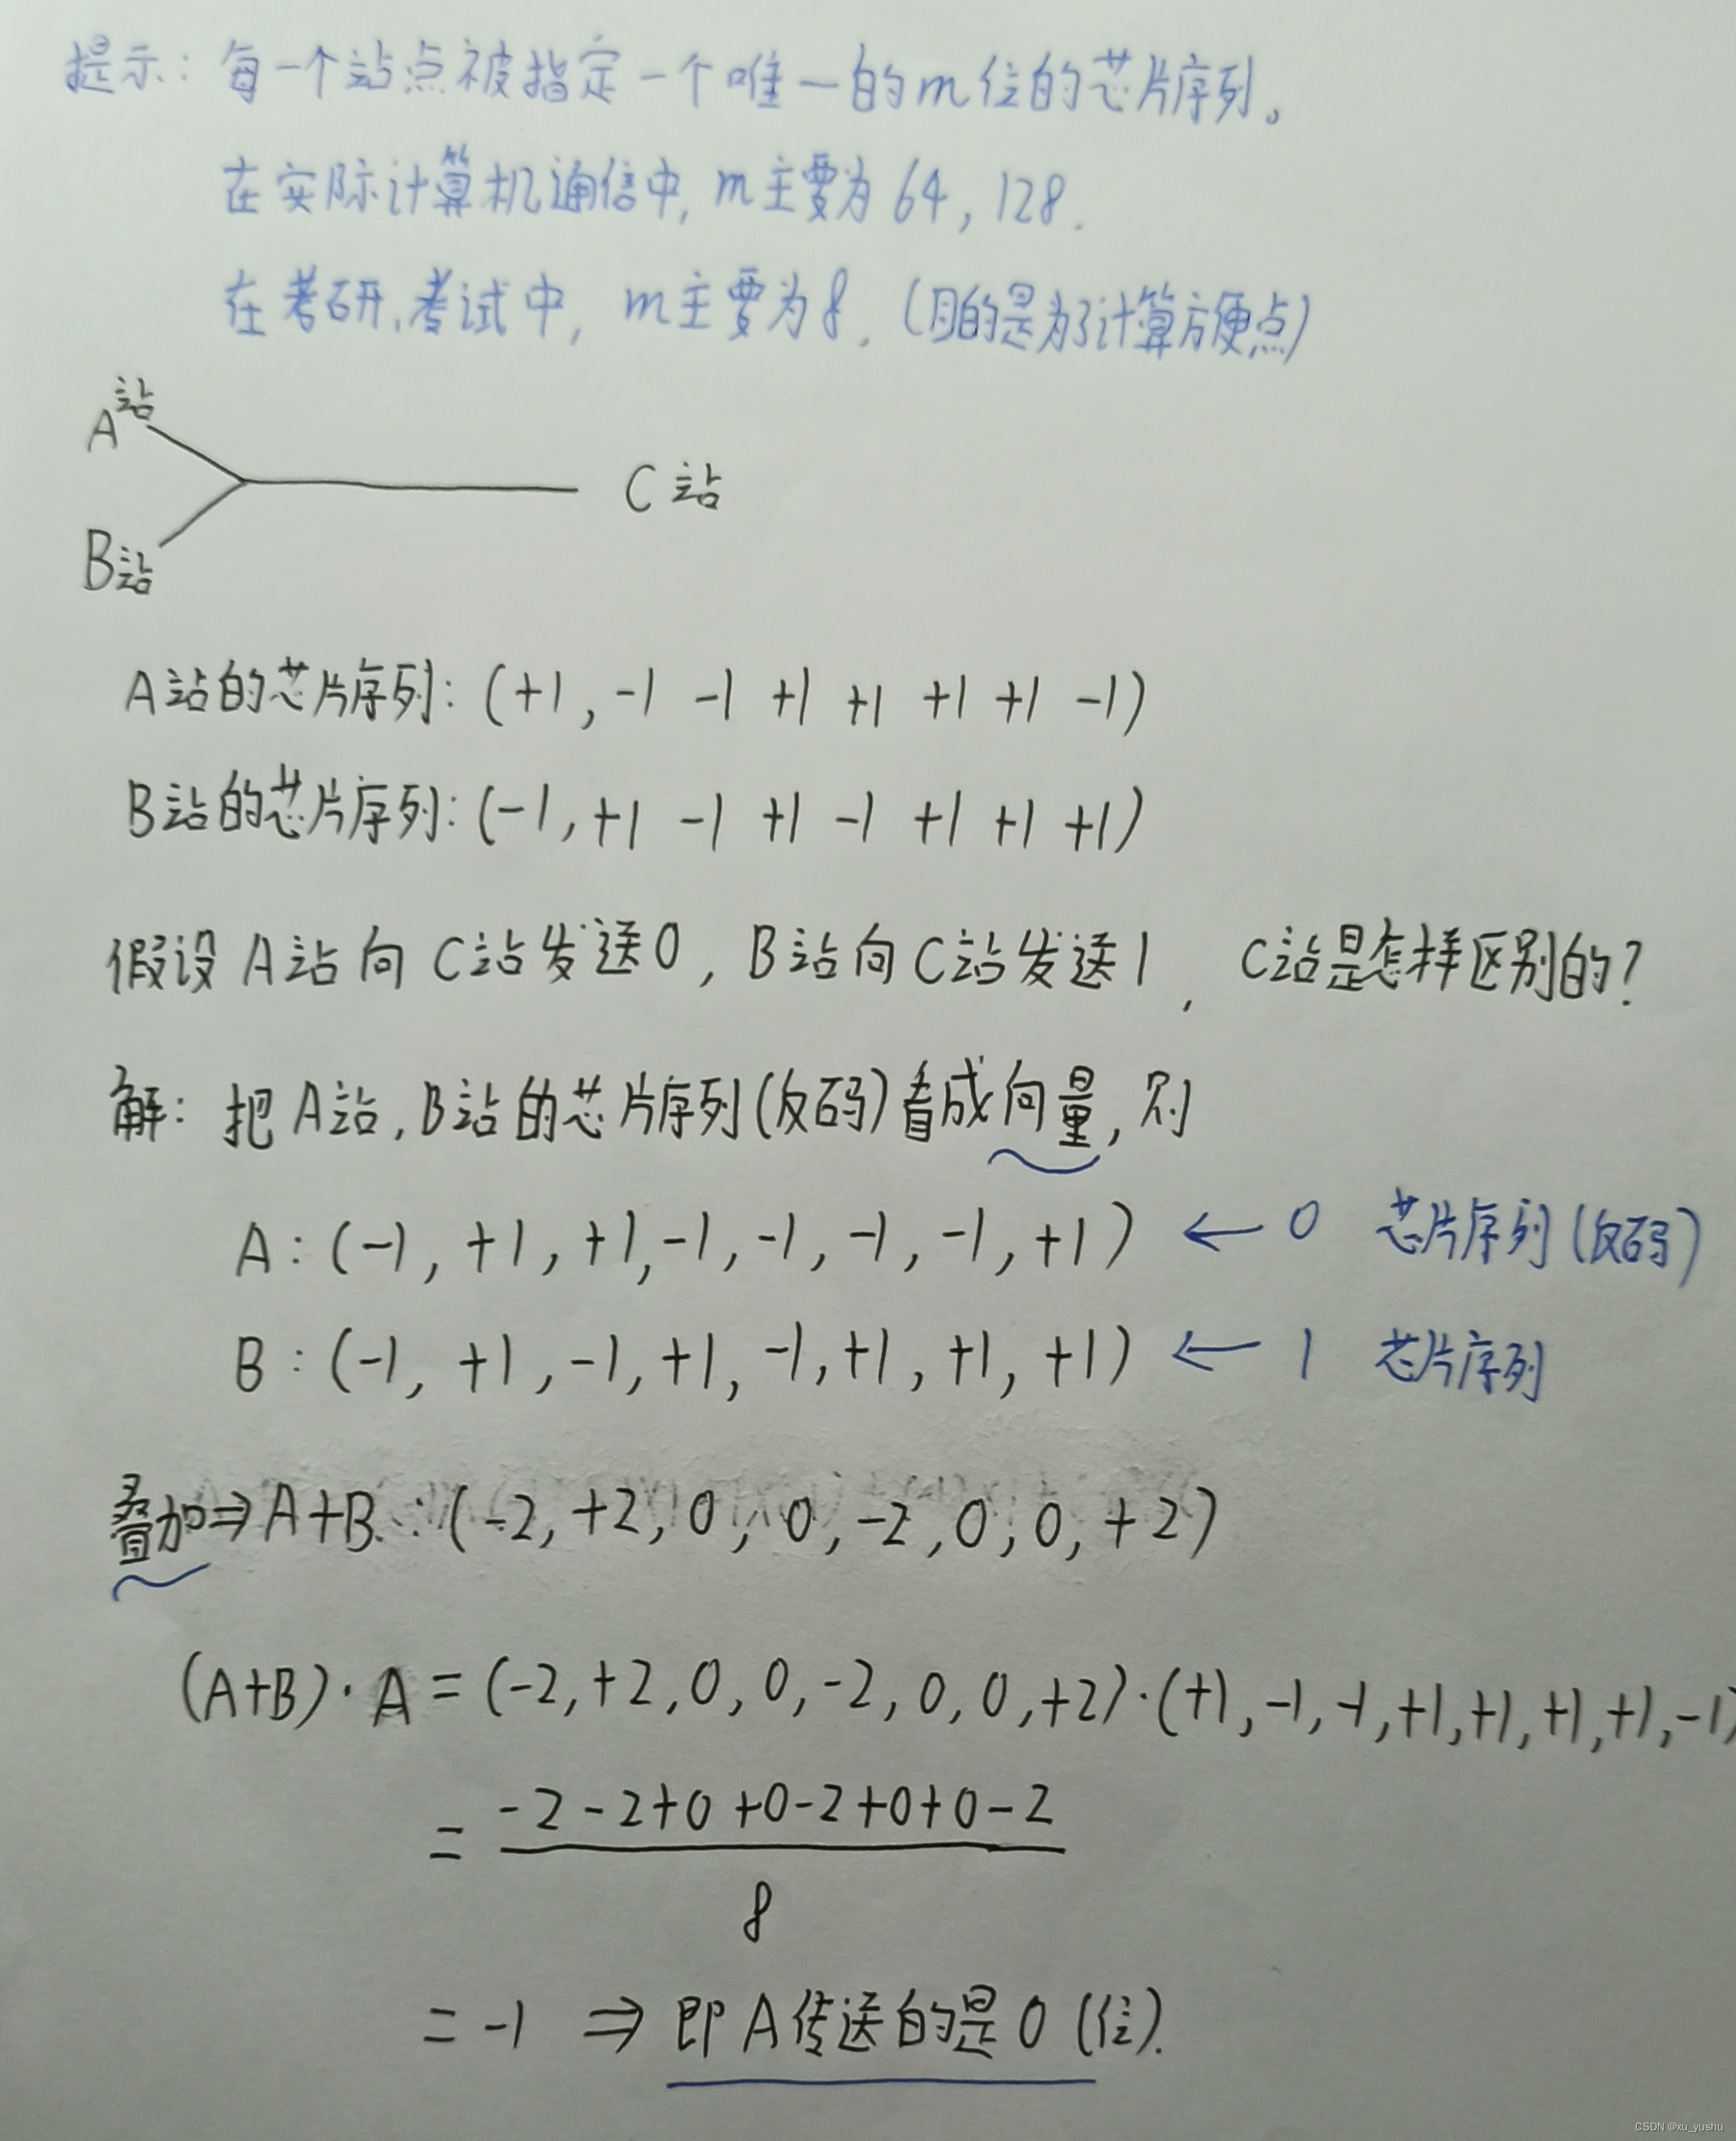 提示：每一个站点被指定一个唯一的m位的芯片序列。
在实际计算机通信中，m主要为64，128.
在考研、考试中，m主要为8.（目的是为了计算方便点）
A站
C站
B站
A站的芯片序列：(+1, -1 -1 +1 +1 +1 +1 -1)
B站的芯片序列：(-1, +1 -1 +1 -1 +1 +1 +1)
假设A站向C站发送0，B站向C站发送1，C站是怎样区别的？
解：把A站，B站的芯片序列(反码)看成向量，则
A：(-1, +1, +1, -1, -1, -1, -1, +1) ← 0 芯片序列(反码)
B：(-1, +1, -1, +1, -1, +1, +1, +1) ← 1 芯片序列
叠加⇒A+B：(-2, +2, 0, 0, -2, 0, 0, +2)
(A+B)·A = (-2, +2, 0, 0, -2, 0, 0, +2)·(+1, -1, -1, +1, +1, +1, +1, -1)
= -2-2+0+0-2+0+0-2
8
= -1 ⇒ 即A传送的是0(位).
CSDN @xu_yushu